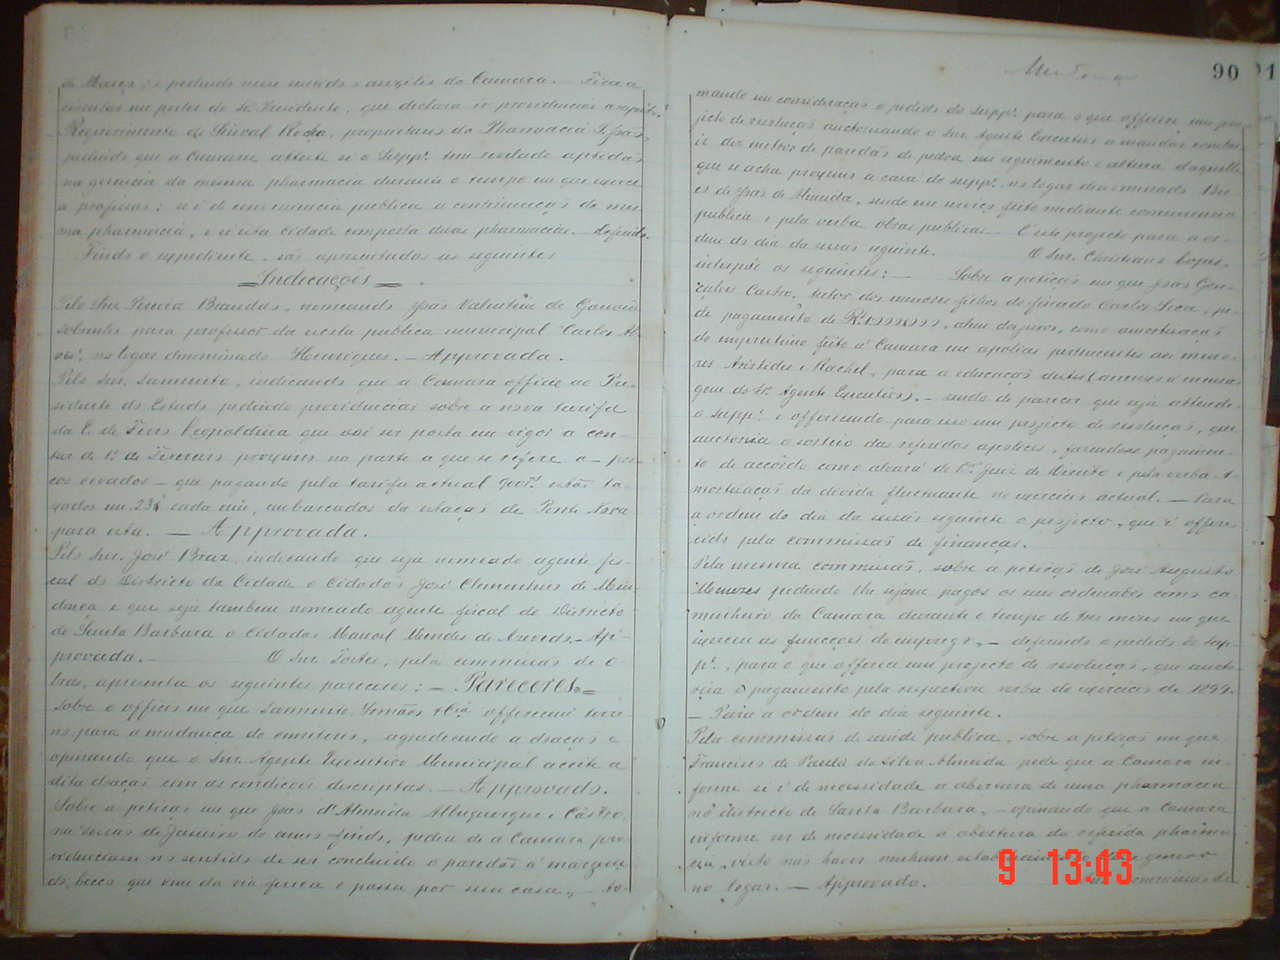 de Março; e pedindo nesse sentido o auxilio da Camara. — Fica a
resolver em poder do Sr. Presidente, que declara ir providenciar a respeito.
Requerimento de Rocha, proprietario da Pharmacia S. José,
pedindo que a Camara atteste si o Suppe. tem revelado aptidão
na gerencia da mesma pharmacia durante o tempo em que exerce
a profissão; si é de conveniencia publica a continuação da mes-
ma pharmacia, e si esta cidade comporta duas pharmacias. — deferido.
Findo o expediente, são apresentadas as seguintes
Indicações
Pelo Snr. Pereira Brandão, nomeando José Valentim de Gouvêa
sobrinho para professor da escola publica municipal "Carlos Al-
ves", no logar denominado Henriques. — Approvada.
Pelo Snr. Sarmento, indicando que a Camara officie ao Pre-
sidente do Estado pedindo providencias sobre a nova tarifa
da E. de Ferro Leopoldina que vai ser posta em vigor a con-
tar de 1º de Fevereiro proximo na parte a que se refere a — por-
cos cevados — que pagando pela tarifa actual estão ta-
xados em 23$ cada um, embarcados da estação de Ponte Nova
para esta. — Approvada.
Pelo Snr. José Braz, indicando que seja nomeado agente fis-
cal do Districto da Cidade o Cidadão José Clementino de Men-
donça e que seja tambem nomeado agente fiscal do Districto
de Santa Barbara o Cidadão Manoel Mendes de Azevedo. — Ap-
provada. — O Snr. Fortes, pela commissão de o-
bras, apresenta os seguintes pareceres: — Pareceres —
sobre o officio em que Sarmento, Irmãos & Cia offerecem terre-
no para a mudança do cemiterio, agradecendo a doação e
opinando que o Snr. Agente Executivo Municipal acceite a
dita doação com as condições descriptas. — Approvado.
Sobre a petição em que José d'Almeida Albuquerque e Castro,
na sessão de Janeiro do anno findo, pediu de a Camara pro-
videnciasse no sentido de ser concluido o paredão á margem
do becco que vem da via ferrea e passa por sua casa, — to-
90
mando em consideração o pedido do suppe. para o que offerece um pro-
jecto de resolução auctorisando o Snr. Agente Executivo a mandar constru-
ir dez metros de paredão de pedra em seguimento e altura daquelle
que se acha proximo a casa do suppe., no logar denominado Bec-
co de José de Almeida, sendo em serviço feito mediante concurrencia
publica e pela verba obras publicas. — E' este projecto para a or-
dem do dia da sessão seguinte. O Snr. Christiano
interpõe os seguintes: — Sobre a petição em que José Gon-
çalves Castro, tutor dos menores filhos do finado Carlos, pe-
de pagamento de além dos juros, como amortização
do emprestimo feito á Camara em apolices pertencentes aos meno-
res Aristides e Rachel, para a educação destes
gem do Sr. Agente Executivo. — sendo de parecer que seja attendi-
o suppe. e offerecendo para isso um projecto de resolução, que
auctorisa o sorteio das referidas apolices, fazendo-se pagamen-
to de accôrdo com o alvará do Dr. Juiz de Direito e pela verba A-
mortisação da divida fluctuante no exercicio actual. — Para
a ordem do dia da sessão seguinte o projecto, que é offere-
cido pela commissão de finanças.
Pela mesma commissão, sobre a petição de José Augusto
Menezes pedindo lhe sejam pagos os seus ordenados como ca-
minheiro da Camara durante o tempo de tres mezes em que
exerceu as funcções do emprego, — deferindo o pedido do sup-
pe., para o que offerece um projecto de resolução, que aucto-
risa o pagamento pela respectiva verba do exercicio de 1899.
— Para a ordem do dia seguinte.
Pela commissão de saúde publica, sobre a petição em que
Francisco de Paula da Silva Almeida pede que a Camara in-
forme si é de necessidade a abertura de uma pharmacia
no districto de Santa Barbara, — opinando que a Camara
informe ser de necessidade a abertura da referida pharma-
cia, visto não haver nenhum estabelecimento genero
no logar. — Approvado. commissão de
9 13:43